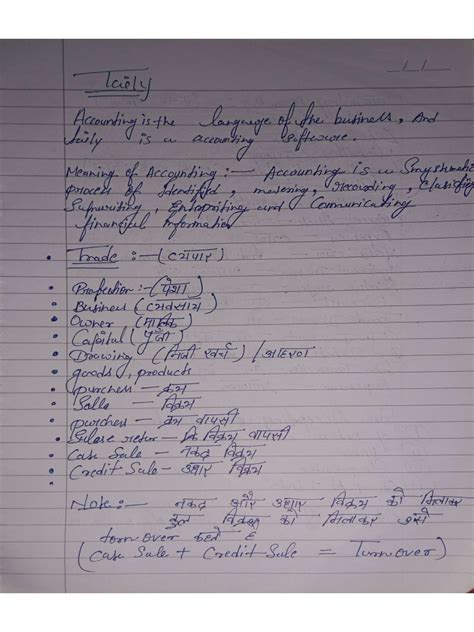 Taily
Accounting is the language of the business, And
taily is a accounting software.
Meaning of Accounting :— Accounting is a Smyshmatic
process of Identifid, masering, recourding, Clasifing
Sumwriting, Entropriting and Comunicating
financiul information
• Trade :— (व्यापार)
• Profection :- (पेशा)
• Business (व्यवसाय)
• Owner (मालिक)
• Capital (पूँजी)
• Drowing (निजी खर्च) / आहरण
goods, products
• purchess — क्रय
• Salle — विक्रय
• purchess — क्रय वापसी
• Salese retur - विक्रय वापसी
• Case Sale - नकद विक्रय
• Credit Sale - उधार विक्रय
•
Note :— नकद और उधार विक्रय को मिलाकर
कुल विक्रय को मिलाकर उसे
torn over कहते है
(Case Sale + Credit Sale = Turnover)